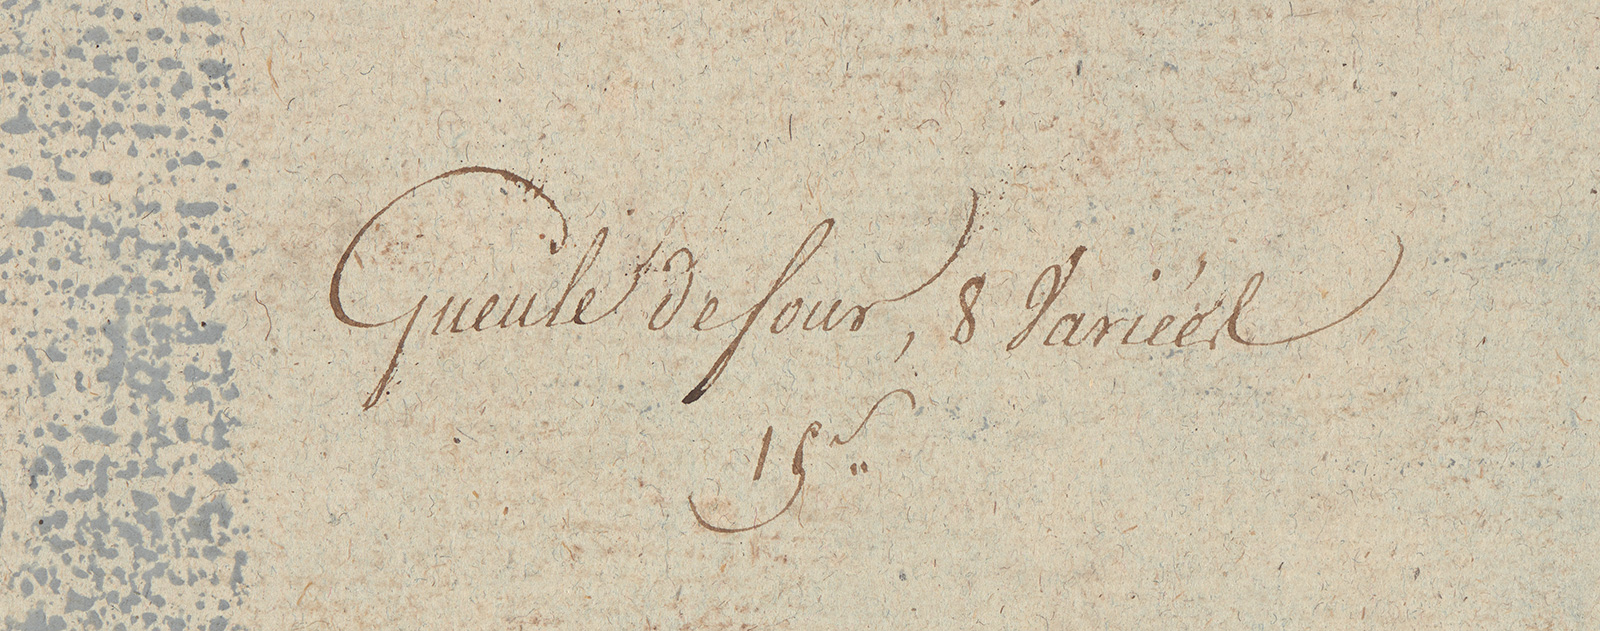 Gueule de four, 8 Variéés
15"